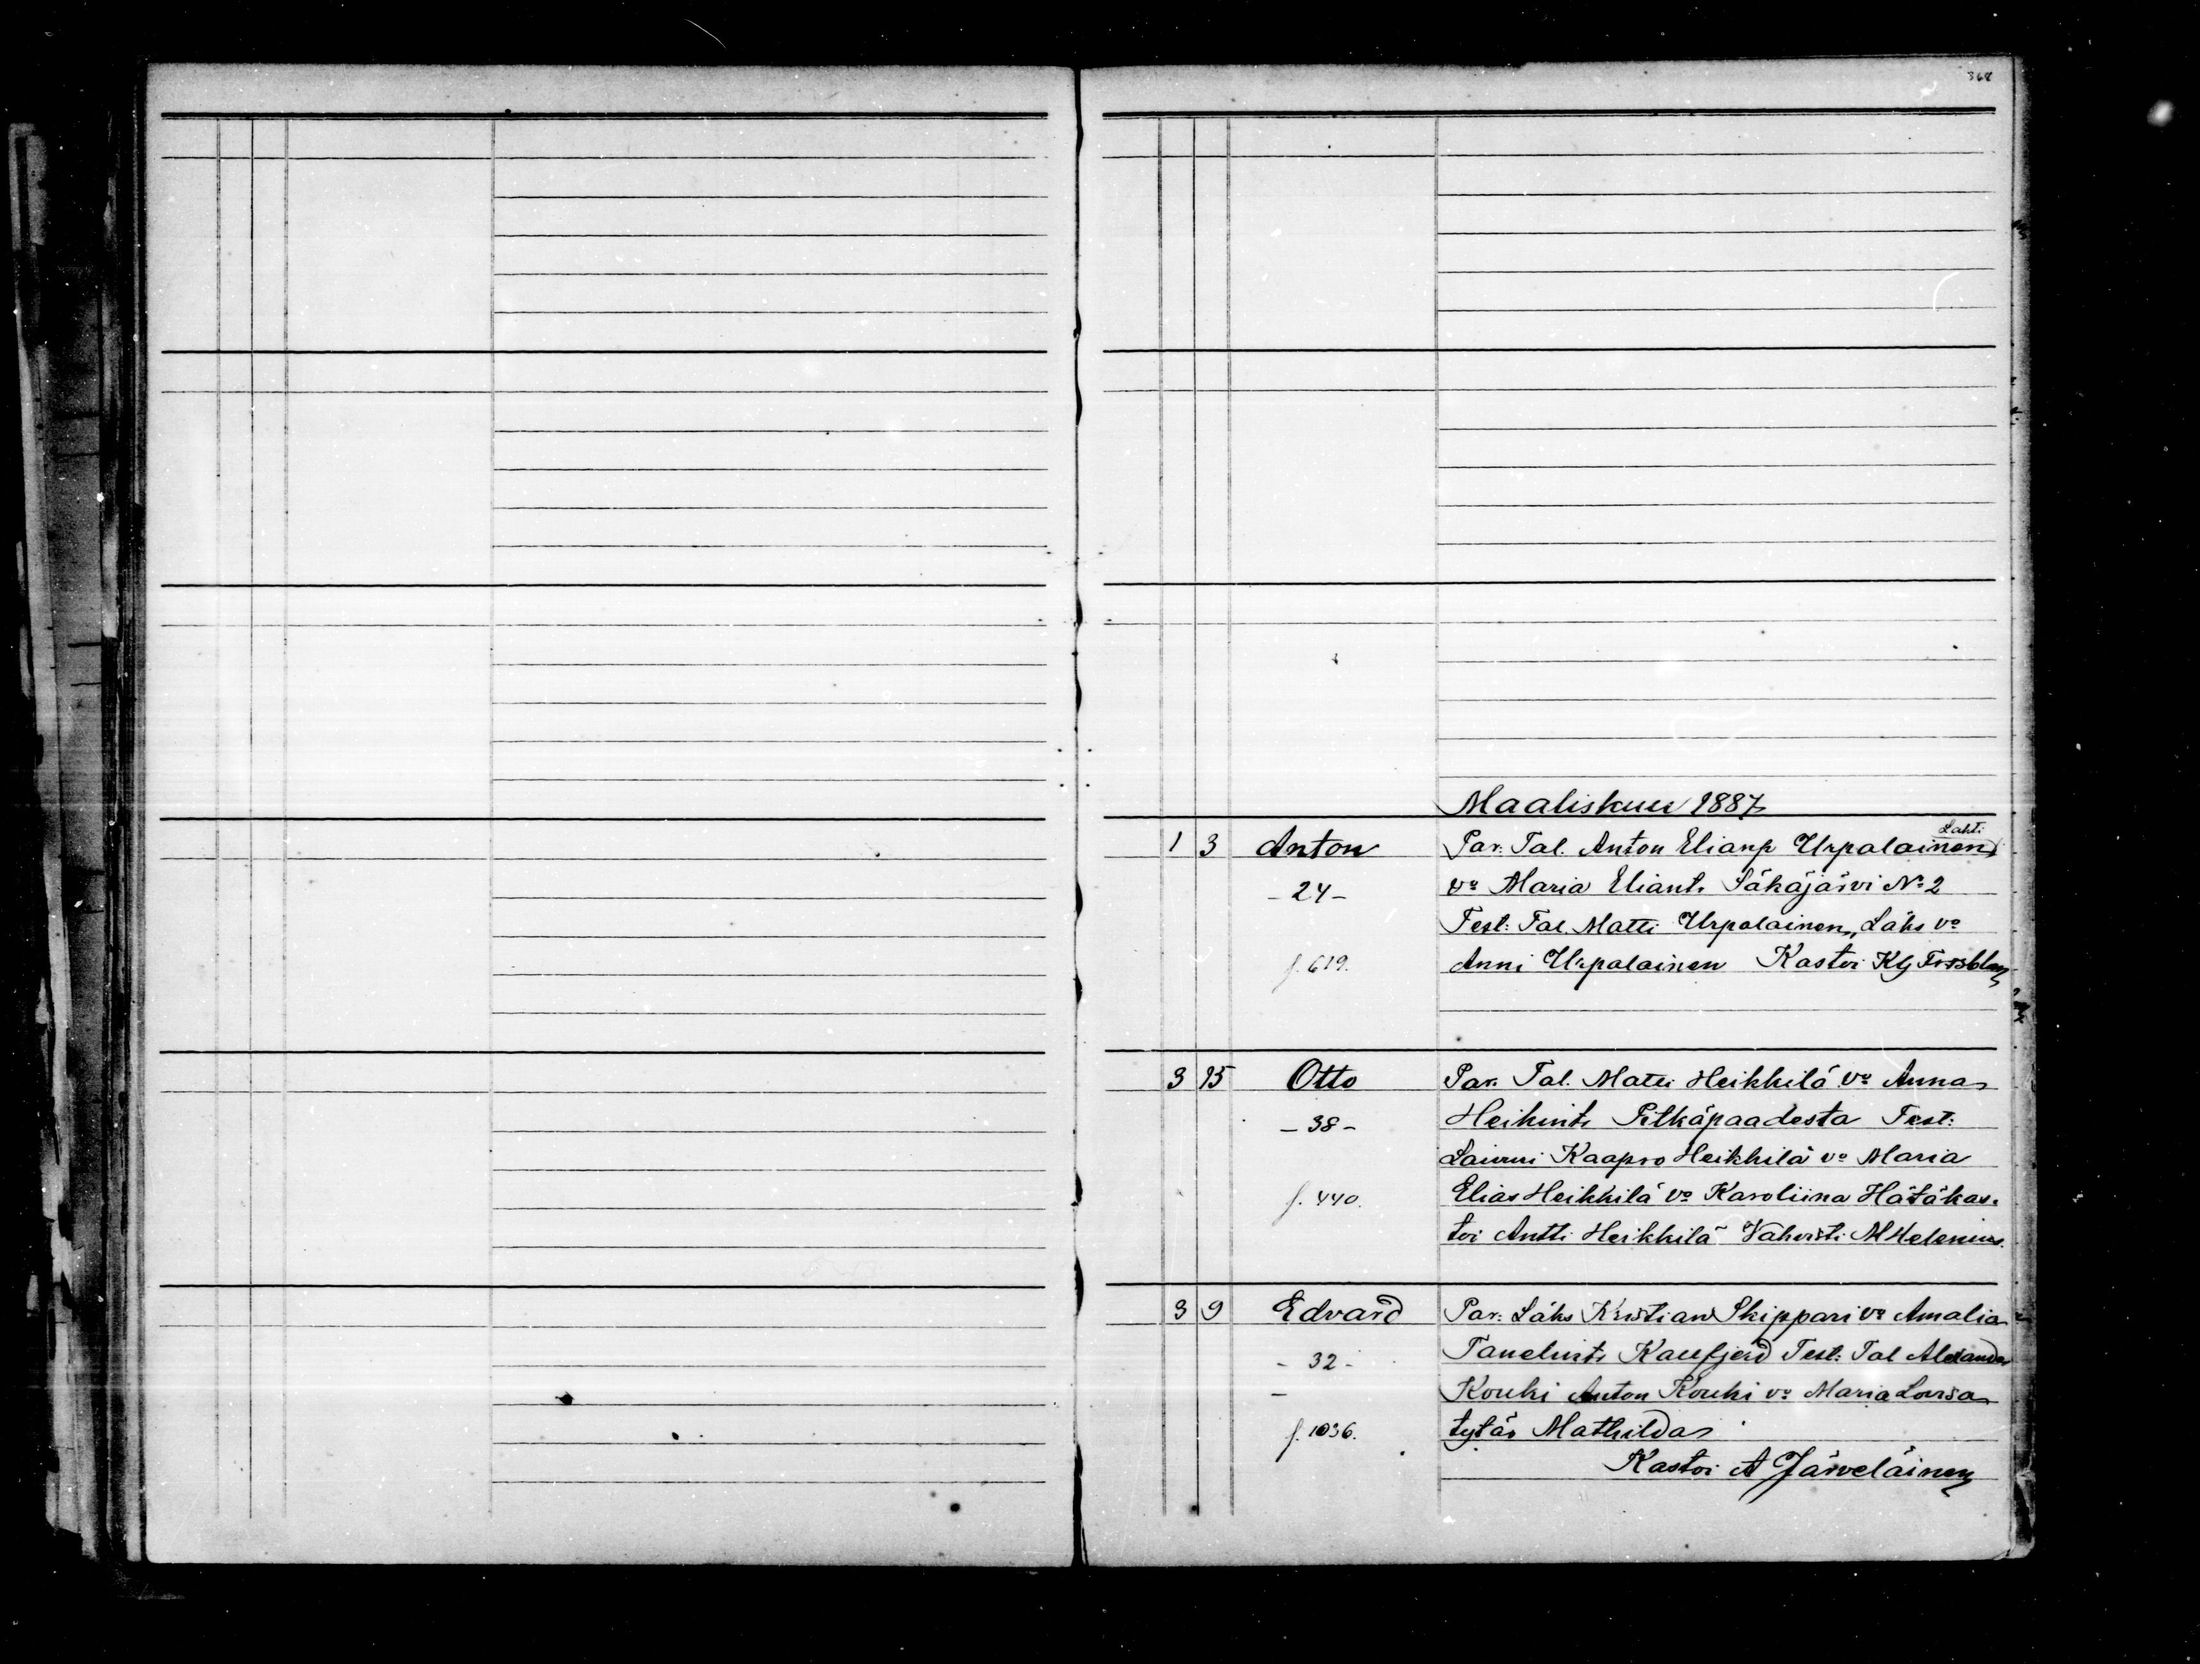 368
Maaliskuu 1887
Lahti
1 3 Anton Par. Tal. Anton Elianp Urpalainen
-24- vo Maria Eliant. Säkäjärvi No 2
Test: Tal. Matti Urpalainen, Läks vo
f. 619. Anni Urpalainen Kastoi KG Forsblom
3 15 Otto Par. Tal. Matti Heikkilä vo Anna
-38- Heikint. Pitkäpaadesta Test:
Laurui Kaapro Heikkilä vo Maria
f. 440. Elias Heikkilä vo Karoliina Hätäkas-
toi Antti Heikkilä Vahvisti M Helenius.
3 9 Edvard Par: Läks Kristian Skippari vo Amalia
- 32 - Tanelint. Test: Tal Alexander
- Kouki Anton Kouki vo Maria Lovisa
f. 1036. tytär Mathilda
Kastoi A Järveläinen